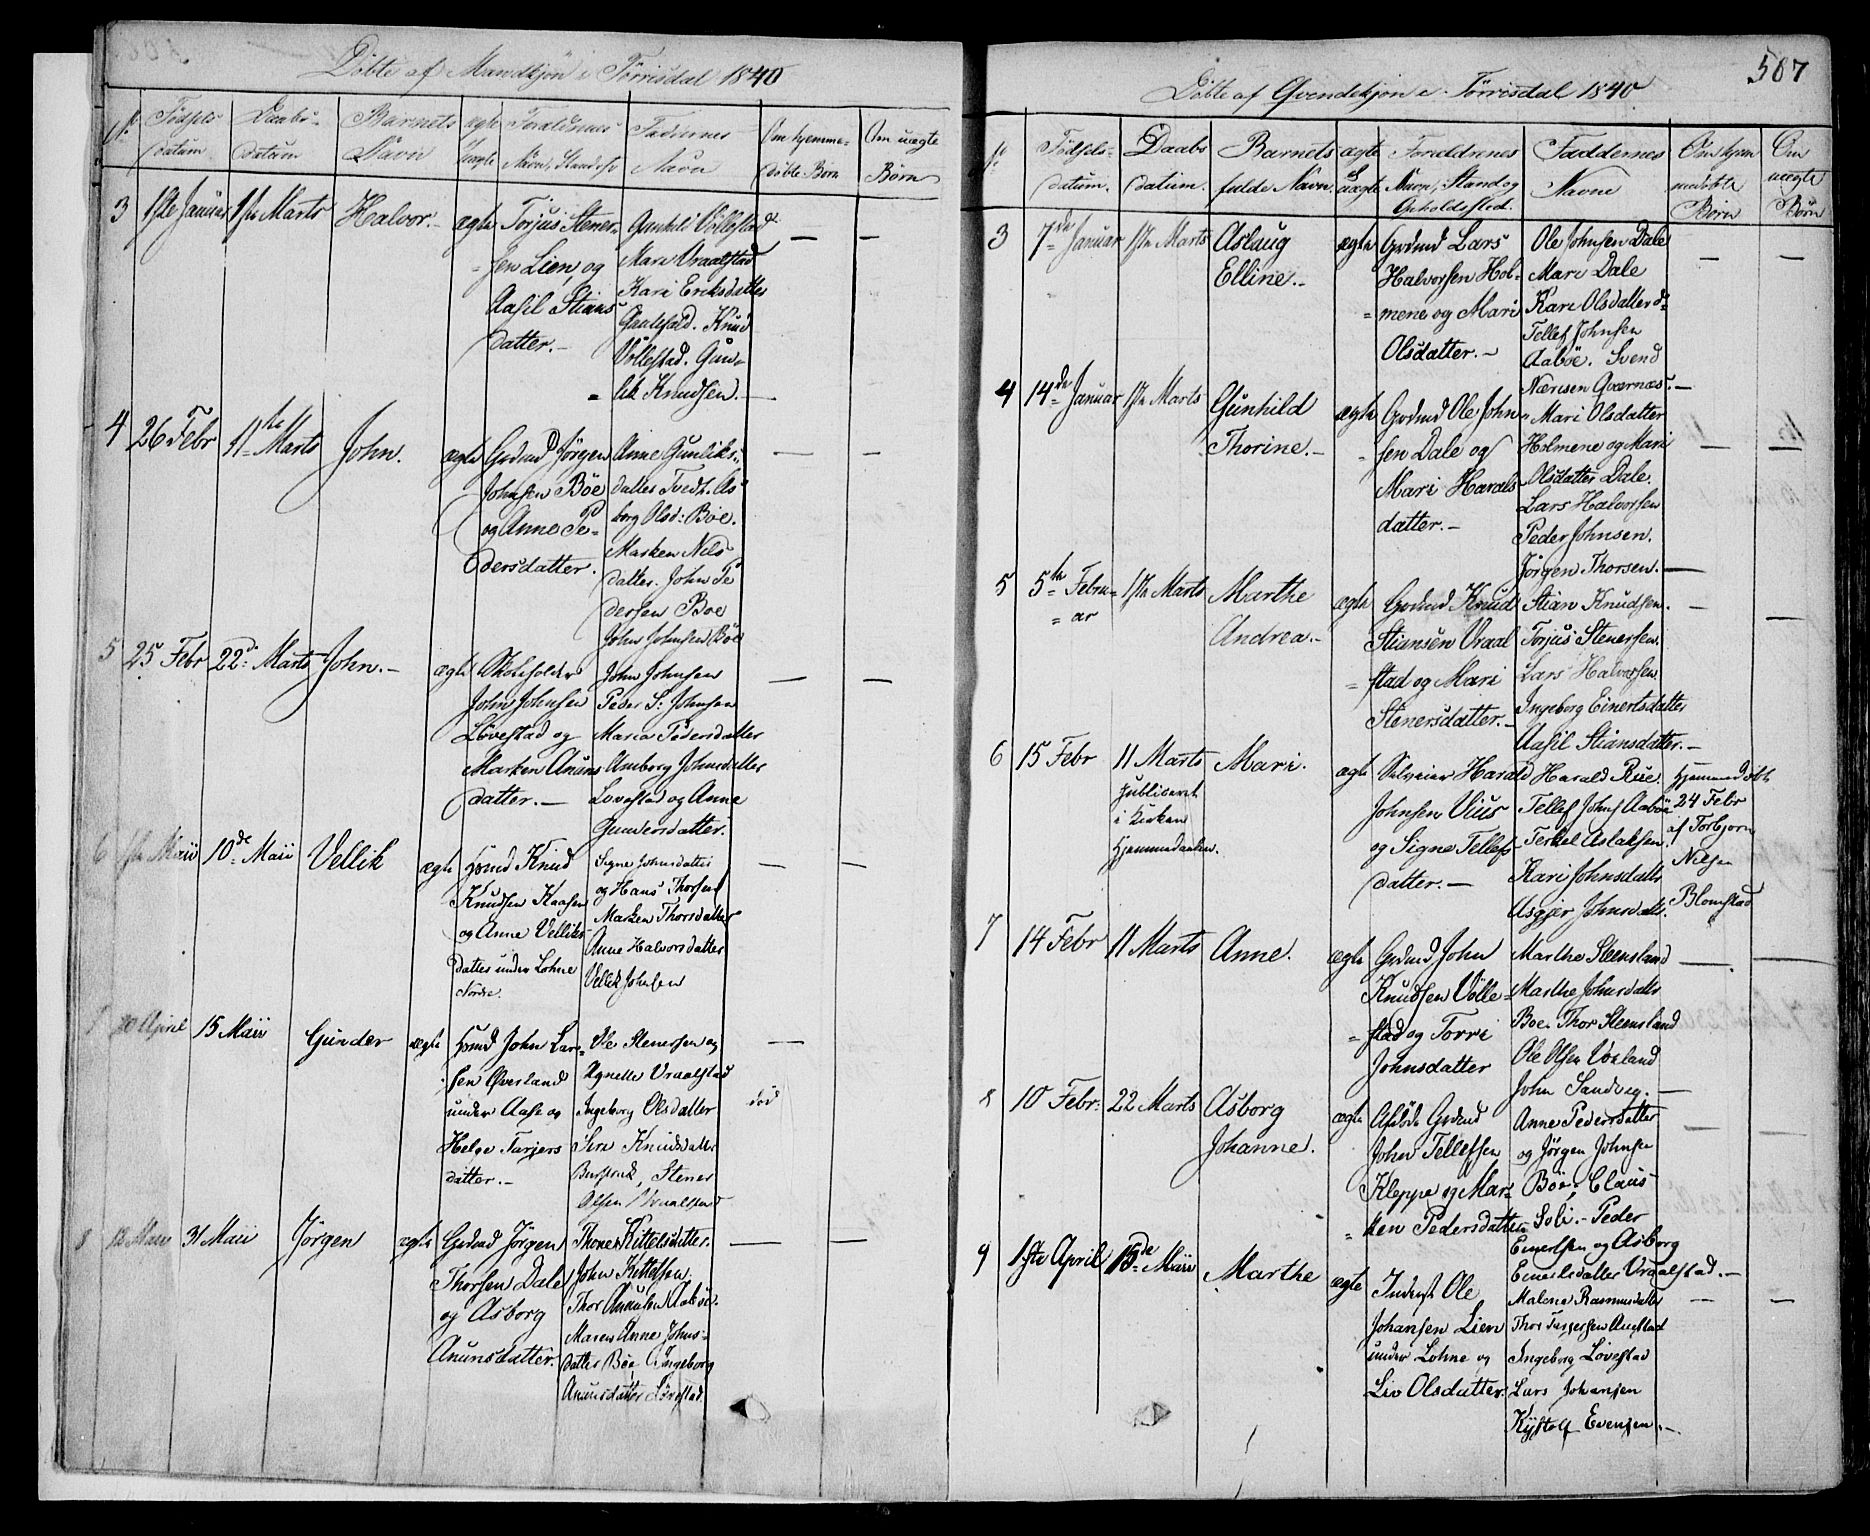 Döbte af Mandkjön i Törrisdal 1840
No Födsels datum
Daabs- datum
Barnets Navn
ægte uægte
Forældrenes Navn, Stand &c
Faddernes Navn
Om hjemme- döbte Börn
Om uægte Börn
3 1ste Januar 1ste Marts Halvor.- ægte
Torjus Stener-
sen Lien, og
Aasil Stians
datter.-
Gunhild Völlestad
Mari Vraalstad
Kari Eriksdatter
Knud
Völlestad. Gun-
lik Knudsen.
4 26 Febr 11te Marts John. ægte
Grdmd Jörgen
Johnsen Böe
og Anne Pe-
dersdatter.
Anne Gunliks-
datter Tvedt. As
borg Olsd: Böe.
Marken Nils
datter. John Pe
dersen Boe
John Johnsen Böe
5 25 Febr 22de Marts John.- ægte
Skoleholder
John Johnsen
Lövestad og
Marken Anuns
datter.-
John Johnsen
Peder S: Johnsen
Maria Pedersdatter
Amborg Johnsdatter
Lovestad og Anne
Gundersdatter.
6 1ste Maii 10de Maii Vellik ægte
Hsmd Knud
Knudsen Kaasen
og Anne Velliks
datter under Lohne
Nordre.
Signe Johnsdatter
og Hans Thorsen
Marken Thorsdatter
Anne Halvorsdatter
Vellik Johnsen
7 20 April 15 Maii Gunder ægte
Hsmd John Lar-
sen Överland
under Aase og
Helge Tarjers
datter.-
Ole Stenersen og
Agnette Vraalstad
Ingeborg Olsdatter
Siri Knudsdatter
Stener
Olsen Vraalstad
död
8 12 Maii 31 Maii Jörgen ægte
Grdmd Jörgen
Thorsen Dale
og Asborg
Anunsdatter.
Thone Kittelsdatter.
John Kittelsen.
Thor Anunsen Aaböe.
Maren Anne Johns-
datter Böe Ingeborg
Anunsdatter Lövestad
507
Döbte af Qvindekjön i Törrisdal 1840
No Födsels- datum.
Daabs datum.
Barnets fulde Navn.
ægte & uægte
Forældrenes Navn, Stand og Opholdssted.
Faddernes Navne
Om hjemmedöbte Börn
Om uægte Börn
3 7de Januar 1ste Marts Aslaug
Elline.- ægte
Grdmd Lars
Halvorsen Hol-
mene og Mari
Olsdatter.-
Ole Johnsen Dale
Mari Dale
Kari Olsdatter
Tellef Johnsen
Aaböe. Svend
Nærisen Qværnæs.-
4 14de Januar 1ste Marts Gunhild
Thorine.- ægte
Grdmd Ole John
sen Dale og
Mari Haralds
datter.-
Mari Olsdatter
Holmene og Mari
Olsdatter Dale.
Lars Halvorsen
Peder Johnsen.
Jörgen Thorsen.-
5 5te Febru-
ar 1ste Marts Marthe
Andrea.- ægte
Grdmd Knud
Stiansen Vraal
stad og Mari
Stenersdatter.-
Stian Knudsen.
Torjus Stenersen.
Lars Halvorsen
Ingeborg Einertsdatter
Aasil Stiansdatter.-
6 15 Febr 11 Marts
publiceret
i Kirken
Hjemmedaaben.
Mari. ægte
Selveier Harald
Johnsen Vius
og Signe Tellefs
datter.-
Harald Rue
Tellef Johns Aaböe
Terkel Aslaksen
Kari Johnsdatter
Asgjer Johnsdatter.
Hjemmedöbt
24 Febr
af Torbjorn
Nilsen
Blomstad
7 14 Febr 11 Marts Anne. ægte
Grdmd John
Knudsen Völle-
stad og Torri
Johnsdatter
Marthe Steensland
Marthe Johnsdatter
Boe. Thor Steensland
Ole Olsen Voxland
John Sandveg.-
8 10 Febr. 22 Marts Asborg
Johanne. ægte
Afdöde Grdmd
John Tellefsen
Kleppe og Mar-
ken Pedersdatter
Anne Pedersdatter
og Jörgen Johnsen
Böe. Claus
Soli.- Peder
Einertsen og Asborg
Einertsdatter Vraalstad.-
9 1ste April 15de Maii Marthe ægte
Inderst Ole
Johansen Lien
under Lohne og
Liv Olsdatter.
Malene Rasmusdatter
Thor Torgersen
Ingeborg Lövestad
Lars Johansen
Evensen.-